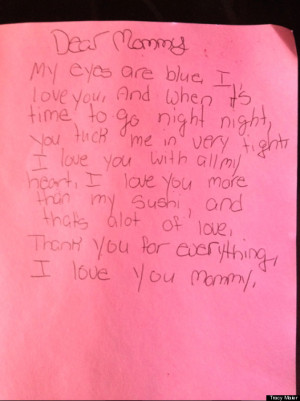 Dear Mommy
My eyes are blue, I
love you, And when it's
time to go night night,
you tuck me in very tight.
I love you with all my
heart, I love you more
than my sushi, and
thats alot of love.
Thank you for everything,
I love you Mommy.
Tracy Maier